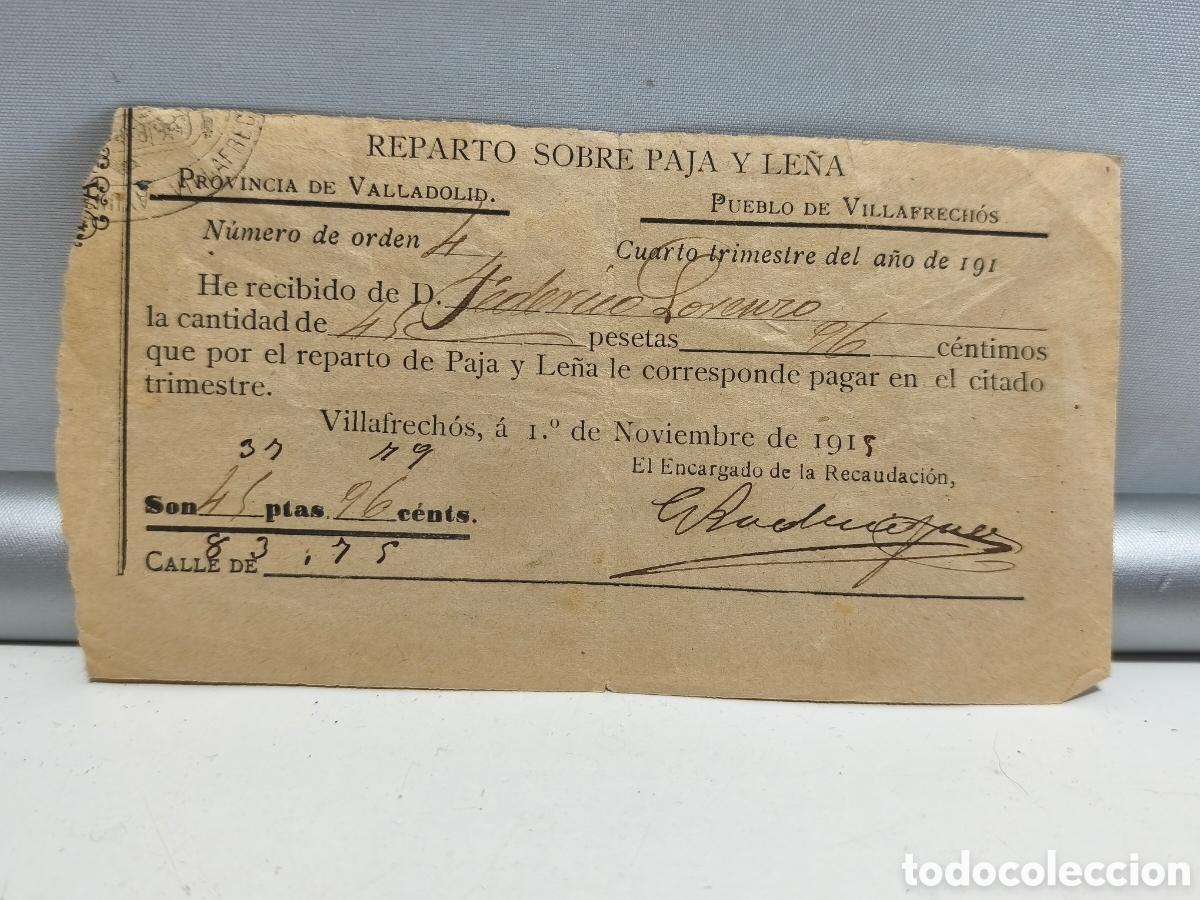 REPARTO SOBRE PAJA Y LEÑA
PROVINCIA DE VALLADOLID.
PUEBLO DE VILLAFRECHÓS
Número de orden 4
Cuarto trimestre del año de 191
He recibido de D. Federico Lorenzo
la cantidad de 45 pesetas 96 céntimos
que por el reparto de Paja y Leña le corresponde pagar en el citado
trimestre.
Villafrechós, á 1.º de Noviembre de 1915
37 79
El Encargado de la Recaudación,
Son 45 ptas. 96 cénts.
83,75
CALLE DE
todocoleccion